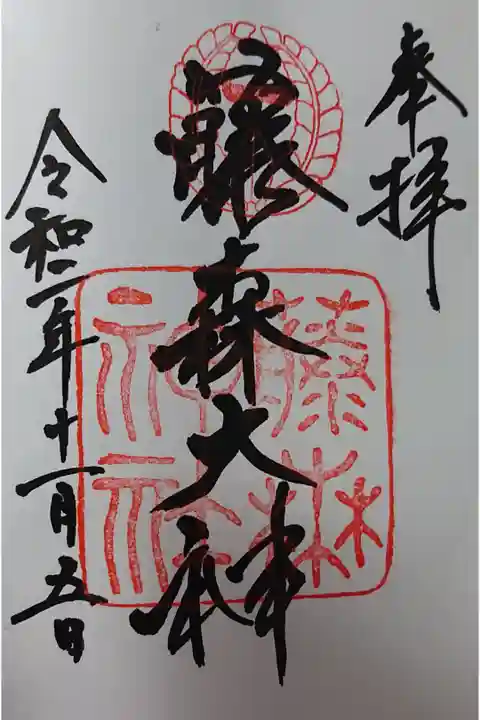 奉拝
藤森大神
藤森神社
令和二年十一月五日